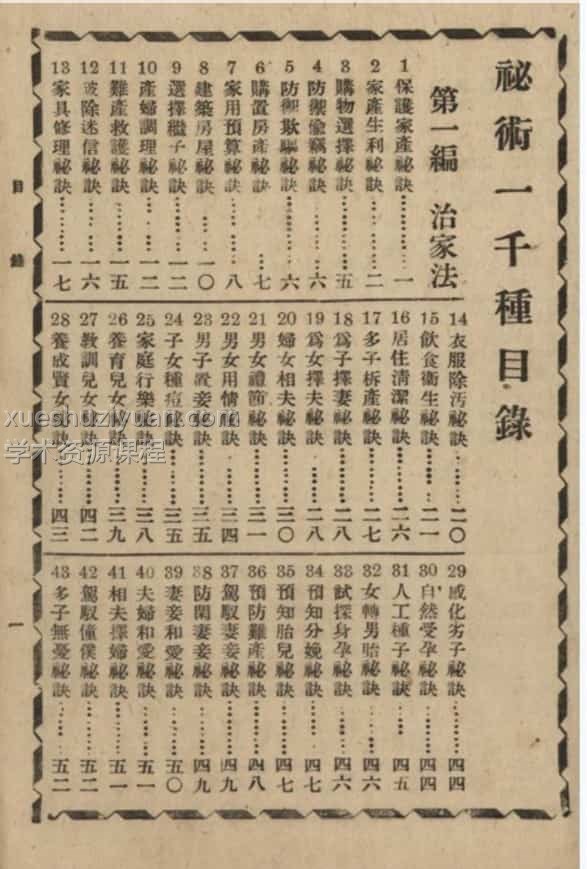 祕術一千種目錄
第一編 治家法
1 保護家產祕訣………一
2 家產生利祕訣………二
3 購物選擇祕訣………五
4 防禦偸竊祕訣………六
5 防禦欺騙祕訣………六
6 購置房產祕訣………七
7 家用預算祕訣………八
8 建築房屋祕訣………一〇
9 選擇繼子祕訣………一二
10 產婦調理祕訣………一二
11 難產救護祕訣………一五
12 破除迷信祕訣………一六
13 家具修理祕訣………一七
14 衣服除汚祕訣………二〇
15 飲食衞生祕訣………二一
16 居住淸潔祕訣………二六
17 多子析產祕訣………二七
18 爲子擇妻祕訣………二八
19 爲女擇夫祕訣………二八
20 婦女相夫祕訣………三〇
21 男女禮節祕訣………三一
22 男女用情祕訣………三四
23 男子置妾祕訣………三五
24 子女種痘祕訣………三五
25 家庭行樂祕訣………三八
26 養育兒女祕訣………三九
27 敎訓兒女祕訣………四二
28 養成賢女祕訣………四三
29 感化劣子祕訣………四四
30 自然受孕祕訣………四四
31 人工種子祕訣………四五
32 女轉男胎祕訣………四六
33 試探身孕祕訣………四六
34 預知分娩祕訣………四七
35 預知胎兒祕訣………四七
36 預防難產祕訣………四八
37 駕馭妻妾祕訣………四九
38 防閑妻妾祕訣………四九
39 妻妾和愛祕訣………五〇
40 夫婦和愛祕訣………五一
41 相夫擇婦祕訣………五一
42 駕馭僮僕祕訣………五二
43 多子無憂祕訣………五二
目錄
一
xueshuziyuan.com
学术资源课程